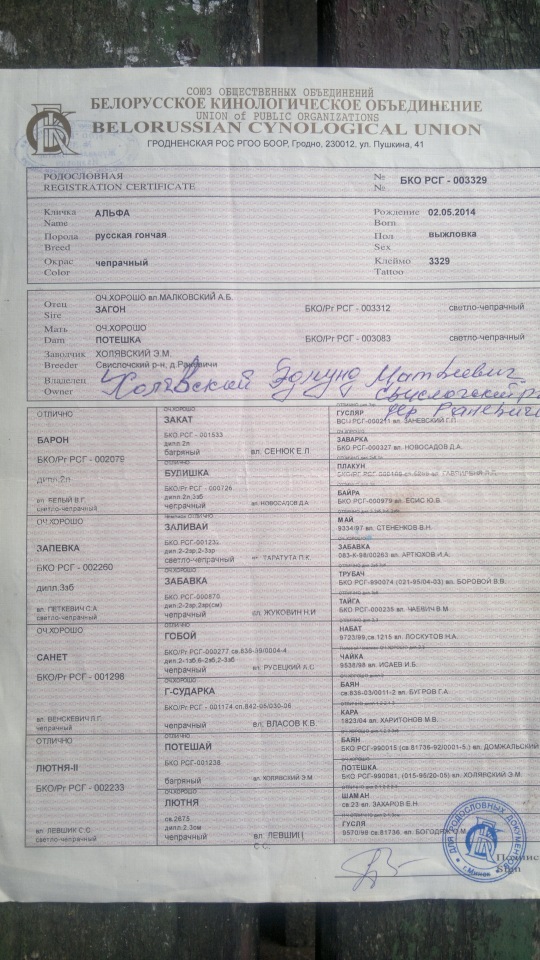 СОЮЗ ОБЩЕСТВЕННЫХ ОБЪЕДИНЕНИЙ
БЕЛОРУССКОЕ КИНОЛОГИЧЕСКОЕ ОБЪЕДИНЕНИЕ
UNION of PUBLIC ORGANIZATIONS
BELORUSSIAN CYNOLOGICAL UNION
ГРОДНЕНСКАЯ РОС РГОО БООР, Гродно, 230012, ул. Пушкина, 41
РОДОСЛОВНАЯ № БКО РСГ - 003329
REGISTRATION CERTIFICATE №
Кличка АЛЬФА Рождение 02.05.2014
Name Born
Порода русская гончая Пол выжловка
Breed Sex
Окрас чепрачный Клеймо 3329
Color Tattoo
ОЧ.ХОРОШО вл.МАЛКОВСКИЙ А.Б.
Отец ЗАГОН БКО/Рг РСГ -003312 светло-чепрачный
Sire
Мать ОЧ.ХОРОШО
Dam ПОТЕШКА БКО/Рг РСГ -003083 светло-чепрачный
Заводчик ХОЛЯВСКИЙ Э.М.
Breeder Свислочский р-н, д.Раневичи
Владелец Холявский Эдмунд Матвеевич
Owner Свислочский р-
дер Раневичи
ОТЛИЧНО
БАРОН
БКО/Рг РСГ - 002079
дипл.2л
вл. БЕЛЫЙ В.Г.
светло-чепрачный
ОЧ.ХОРОШО
ЗАПЕВКА
БКО/Рг РСГ - 002260
дипл.3зб
вл. ПЕТКЕВИЧ С.А
светло-чепрачный
ОЧ.ХОРОШО
САНЕТ
БКО/Рг РСГ - 001298
вл. ВЕНСКЕВИЧ Л.Г.
чепрачный
ОТЛИЧНО
ЛЮТНЯ-II
БКО/Рг РСГ - 002233
вл. ЛЕВШИК С.С
светло-чепрачный
ОЧ.ХОРОШО
ЗАКАТ
БКО РСГ -001533
дипл.2л
багряный вл. СЕНЮК Е.Л.
ОТЛИЧНО
БУДИШКА
БКО/Рг РСГ -000726
дипл.2л,3зб
чепрачный вл. НОВОСАДОВ Д.А.
ЗАЛИВАЙ
дип.2-2зр,2-3зр
светло-чепрачный ТАРАТУТА П.К.
ОЧ.ХОРОШО
ЗАБАВКА
БКО/Рг РСГ -000870
дип.2-2зр,2зр(см)
чепрачный вл. ЖУКОВИН Н.И
ОТЛИЧНО
ГОБОЙ
БКО/Рг РСГ -000277 св.836-09/0004-4
чепрачный вл. РУСЕЦКИЙ А.С
ОЧ.ХОРОШО
Г-СУДАРКА
БКО/Рг РСГ - 001174 сп.842-05/030-06
чепрачный вл. ВЛАСОВ К.В.
ОТЛИЧНО
ПОТЕШАЙ
БКО РСГ -001238
багряный вл. ХОЛЯВСКИЙ Э.М
ОЧ.ХОРОШО
ЛЮТНЯ
св.2675
дипл.2.3см
чепрачный вл. ЛЕВШИ
С.С.
ГУСЛЯР
РСГ-000211 вл. ЗАНЕВСКИЙ Г.П
ЗАВАРКА
БКО РСГ-000327 вл. НОВОСАДОВ Д.А.
ПЛАКУН
БАЙРА
БКО РСГ-000979 вл. ЕСИС Ю.В.
МАЙ
9334/97 вл. СТЕНЕНКОВ В.Н.
ЗАБАВКА
083-К-98/00263 вл. АРТЮХОВ И.А.
ТРУБАЧ
БКО РСГ-990074 (021-95/04-03) вл. БОРОВОЙ В.В.
ТАЙГА
БКО РСГ-000235 вл. ЧАЕВИЧ В.М.
НАБАТ
9723/99,св.1215 вл. ЛОСКУТОВ Н.А.
ЧАЙКА
9538/98 вл. ИСАЕВ И.Б.
БАЯН
св.836-03/0011-2 вл. БУГРОВ Г.А.
КАРА
1823/04 вл. ХАРИТОНОВ М.В.
БАЯН
БКО РСГ-990015 (св.81736-92/0001-5.) вл. ДОМЖАЛЬСКИЙ
ПОТЕШКА
БКО РСГ-990081, (015-95/20-05) вл. ХОЛЯВСКИЙ Э.М.
ШАМАН
св.23 вл. ЗАХАРОВ Е.Н.
ГУСЛЯ
9570/99 св.81736. вл.
ДЛЯ РОДОСЛОВНЫХ ДОКУМЕНТОВ
г.Минск